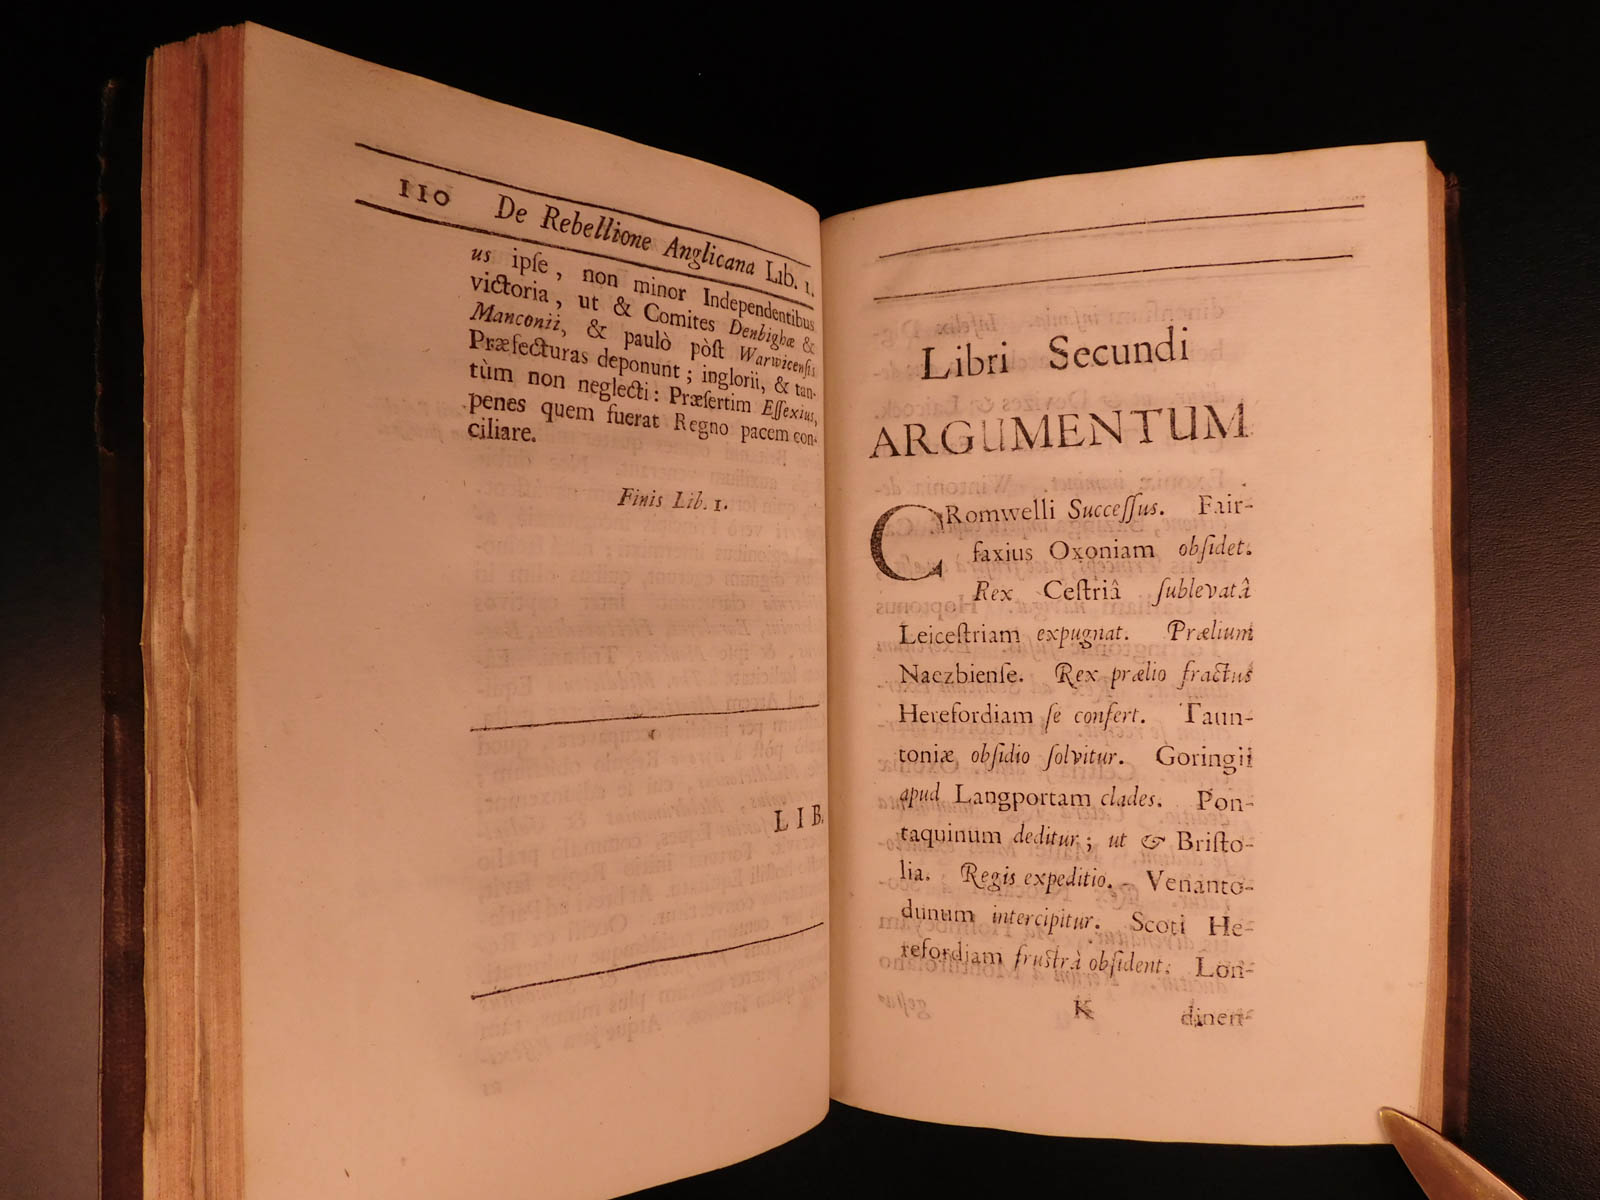 110 De Rebellione Anglicana Lib. 1.
us ipſe, non minor Independentibus
victoria, ut & Comites Denbighæ &
Manconii, & paulò pòſt Warwicenſis
Præfecturas deponunt; inglorii, & tan-
tùm non neglecti: Præſertim Eſſexius,
penes quem fuerat Regno pacem con-
ciliare.
Finis Lib. 1.
LIB.
Libri Secundi
ARGUMENTUM
CRomwelli Succeſſus. Fair-
faxius Oxoniam obſidet.
Rex Ceſtriâ ſublevatâ
Leiceſtriam expugnat. Prælium
Naezbienſe. Rex prælio fractus
Herefordiam ſe confert. Taun-
toniæ obſidio ſolvitur. Goringii
apud Langportam clades. Pon-
taquinum deditur; ut & Briſto-
lia. Regis expeditio. Venanto-
dunum intercipitur. Scoti He-
refordiam fruſtrà obſident. Lon-
K dinen-